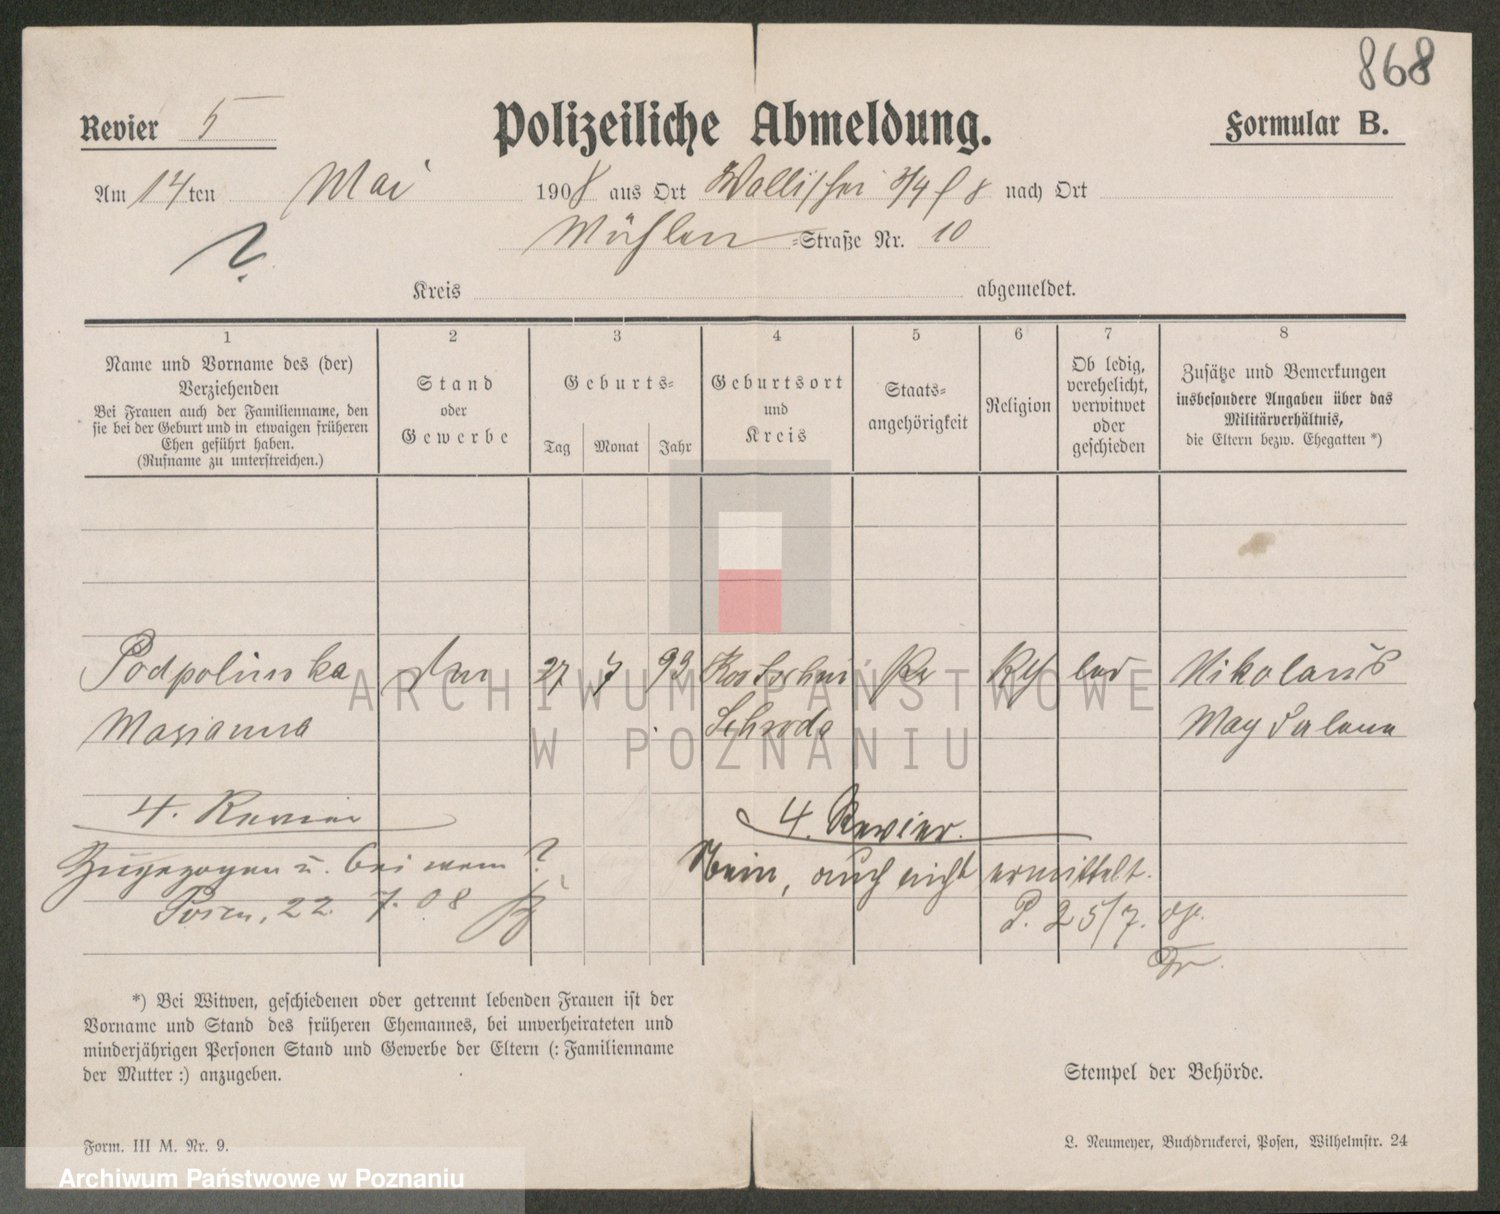 868
Revier 5
Polizeiliche Abmeldung.
Formular B.
Am 14ten Mai 1908 aus Ort Wallischei nach Ort
Mühlen =Straße Nr. 10
?
Kreis abgemeldet.
1 2 3 4 5 6 7 8
Name und Vorname des (der)
Verziehenden
Bei Frauen auch der Familienname, den
sie bei der Geburt und in etwaigen früheren
Ehen geführt haben.
(Rufname zu unterstreichen.)
Stand
oder
Gewerbe
Geburts=
Tag Monat Jahr
Geburtsort
und
Kreis
Staats=
angehörigkeit
Religion
Ob ledig,
verehelicht,
verwitwet
oder
geschieden
Zusätze und Bemerkungen
insbesondere Angaben über das
Militärverhältnis,
die Eltern bezw. Ehegatten *)
Podpolinska 27 7 93 Kostschin Pr Kth led Nikolaus
Marianna Schroda Magdalena
ARCHIWUM PAŃSTWOWE
W POZNANIU
4. Revier
Zugezogen u. bei wem?
Posen, 22. 7. 08
4. Revier.
Nein, auch nicht ermittelt.
P. 25/7. 08.
*) Bei Witwen, geschiedenen oder getrennt lebenden Frauen ist der
Vorname und Stand des früheren Ehemannes, bei unverheirateten und
minderjährigen Personen Stand und Gewerbe der Eltern (: Familienname
der Mutter :) anzugeben.
Stempel der Behörde.
Form. III M. Nr. 9.
L. Neumeyer, Buchdruckerei, Posen, Wilhelmstr. 24
Archiwum Państwowe w Poznaniu